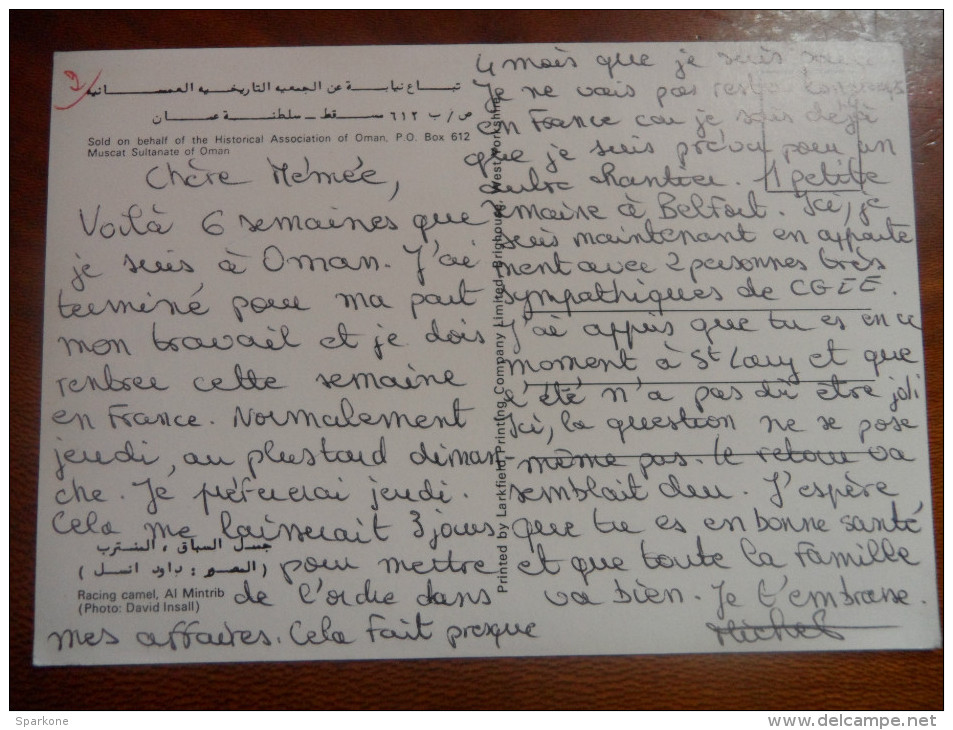 2
تبـــاع نيابـــة عن الجمعيه التاريخيـــه العمـــانيه
ص/ب ٦١٢ مسـقط - سلطنـة عمـــان
Sold on behalf of the Historical Association of Oman, P.O. Box 612
Muscat Sultanate of Oman
Chère Mémée,
Voilà 6 semaines que
je suis à Oman. J'ai
terminé pour ma part
mon travail et je dois
rentrer cette semaine
en France. Normalement
jeudi, au plus tard diman-
che. Je préfererai jeudi.
Cela me laisserait 3 jours
pour mettre
de l'ordre dans
mes affaires. Cela fait presque
جمل السباق ، المنترب
( المصور : داود انسل )
Racing camel, Al Mintrib
(Photo: David Insall)
Printed by Larkfield Printing Company Limited, Brighouse, West Yorkshire
4 mois que je suis
Je ne vais pas rester longtemps
en France car je sais déjà
que je suis prévu pour un
autre chantier. 1 petite
semaine à Belfort. Ici, je
suis maintenant en apparte
ment avec 2 personnes très
sympathiques de CGEE.
J'ai appris que tu es en ce
moment à St Loup et que
l'été n'a pas dû être joli
Ici, la question ne se pose
même pas. Le retour va
semblait dur. J'espère
que tu es en bonne santé
et que toute la famille
va bien. Je t'embrasse.
Michel
Sparkone
www.delcampe.net